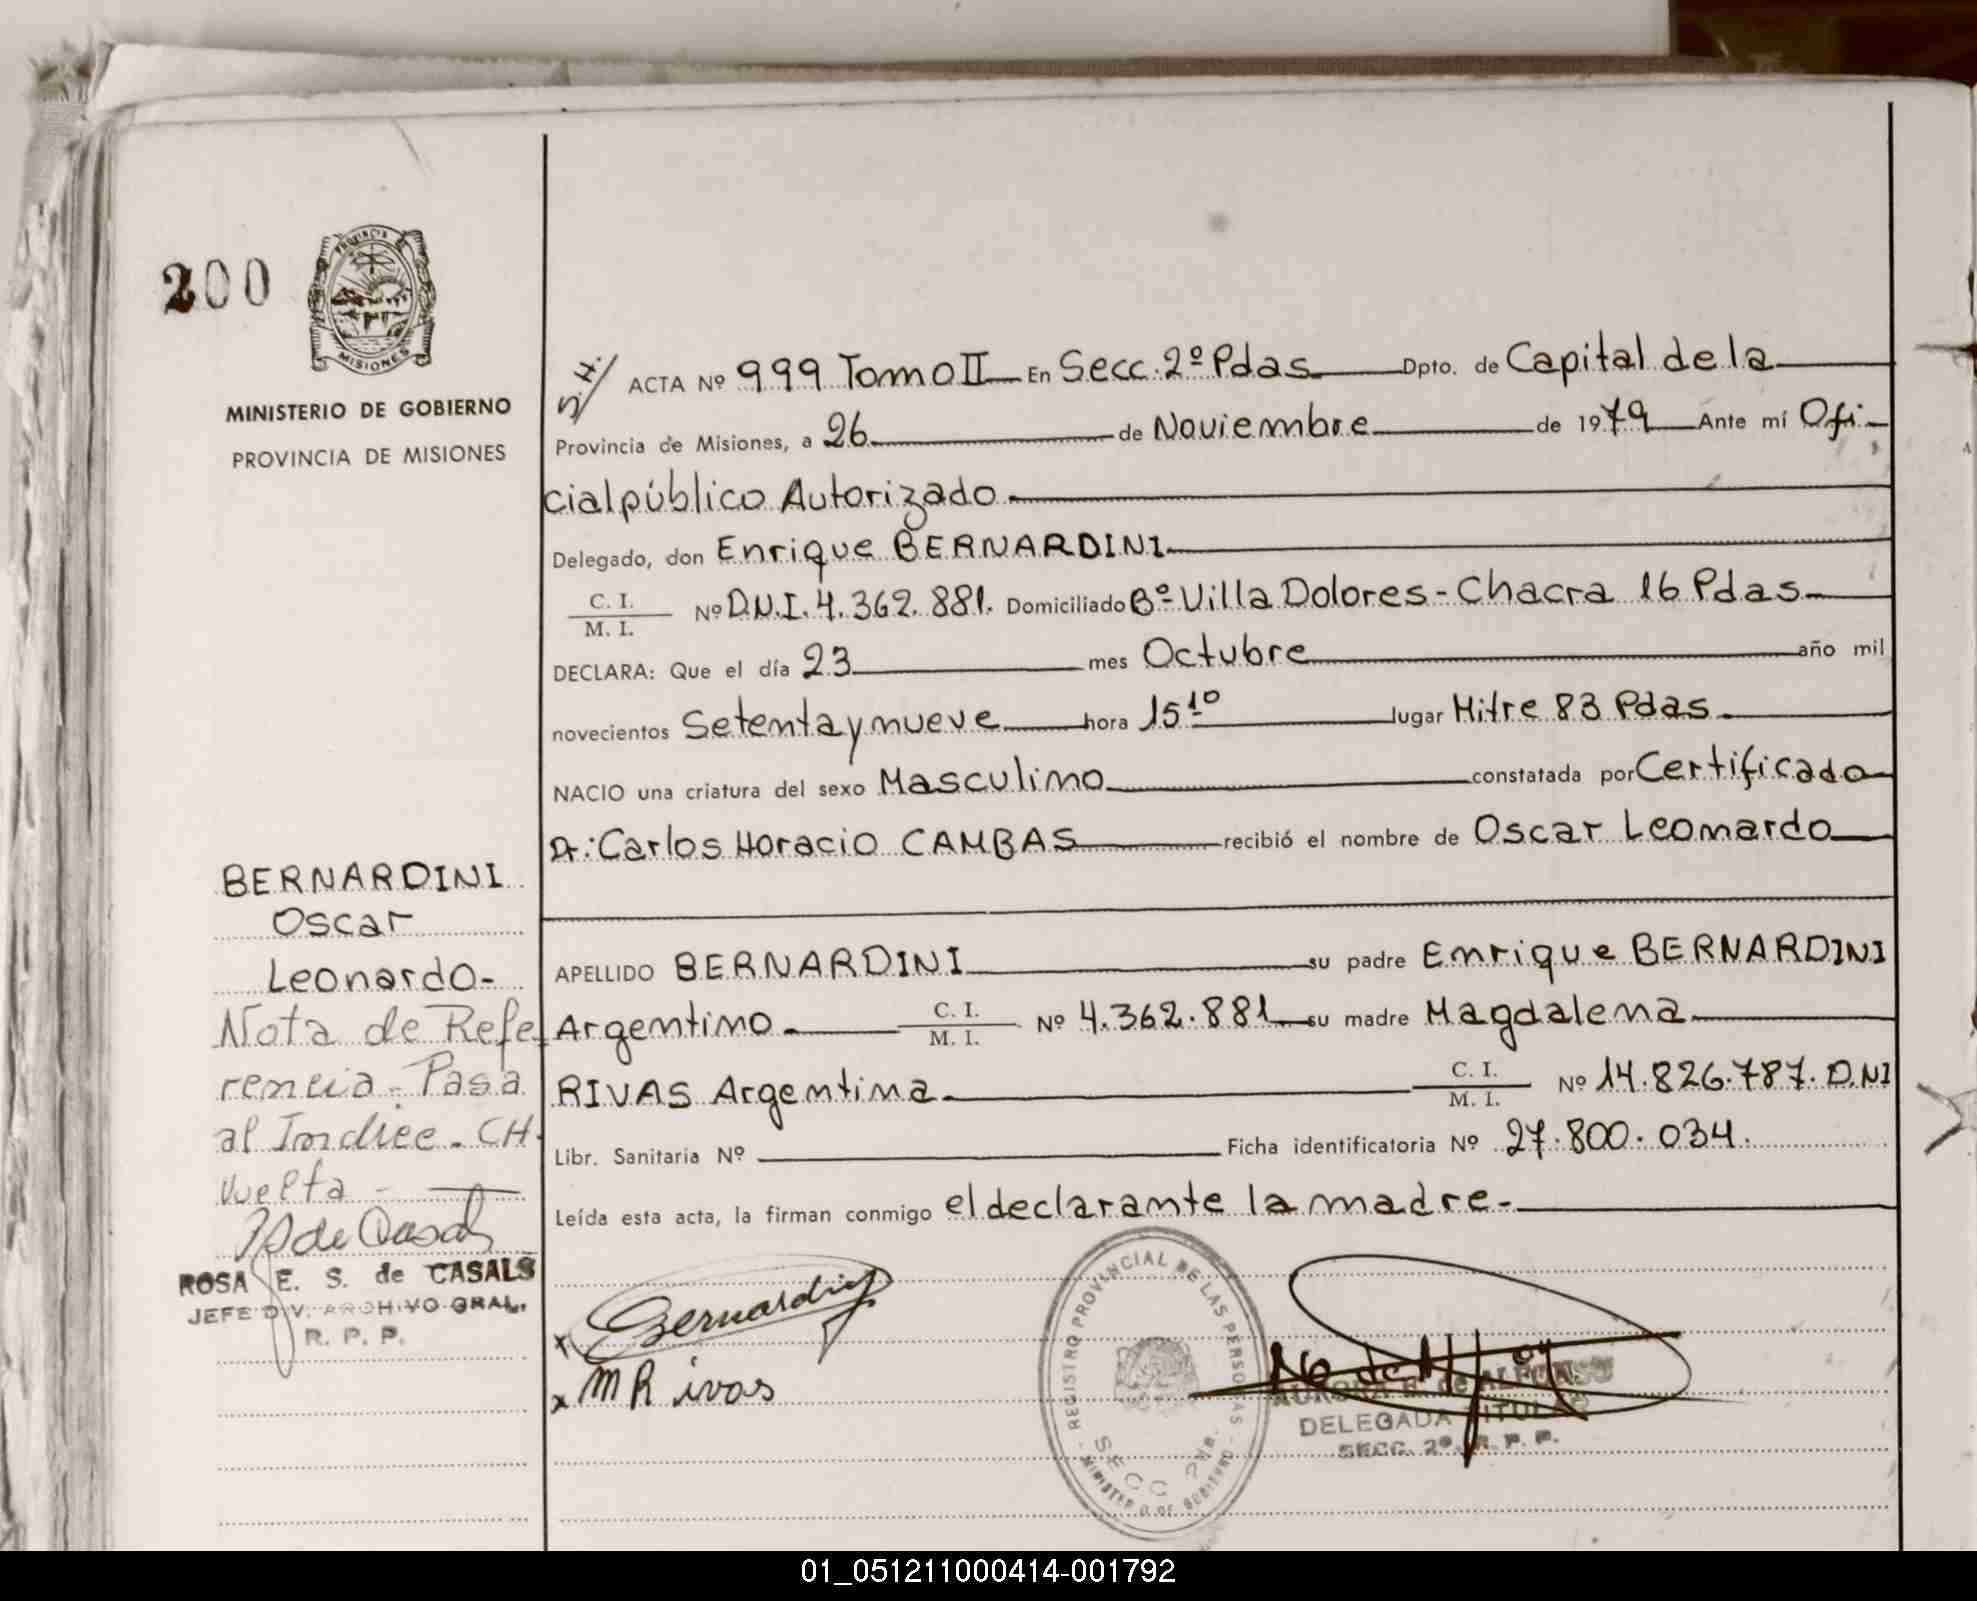 200
PROVINCIA DE
MISIONES
MINISTERIO DE GOBIERNO
PROVINCIA DE MISIONES
BERNARDINI
Oscar
Leonardo-
Nota de Refe
rencia - Pasa
al Indice - CH.
Vuelta -
ROSA E. S. de CASALS
JEFE DIV. ARCHIVO GRAL.
R. P. P.
ACTA Nº 999 Tomo II En Secc. 2º Pdas Dpto. de Capital de la
Provincia de Misiones, a 26 de Noviembre de 1979 Ante mí Ofi-
cial público Autorizado
Delegado, don Enrique BERNARDINI
C. I.
M. I.
Nº D.N.I. 4.362.881. Domiciliado Bº Villa Dolores - Chacra 16 Pdas
DECLARA: Que el día 23 mes Octubre año mil
novecientos Setenta y nueve hora 15 10 lugar Mitre 83 Pdas
NACIO una criatura del sexo Masculino constatada por Certificado
Dr: Carlos Horacio CAMBAS recibió el nombre de Oscar Leonardo
APELLIDO BERNARDINI su padre Enrique BERNARDINI
Argentino C. I.
M. I. Nº 4.362.881 su madre Magdalena
RIVAS Argentina C. I.
M. I. Nº 14.826.787. D.NI
Libr. Sanitaria Nº Ficha identificatoria Nº 27.800.034.
Leída esta acta, la firman conmigo el declarante la madre-
x Bernardini
x M Rivas
REGISTRO PROVINCIAL DE LAS PERSONAS - MINISTERIO DE GOBIERNO -
SECC 2da.
AURORA de ALFONSO
DELEGADA TITULAR
SECC. 2º. R. P. P.
01_051211000414-001792